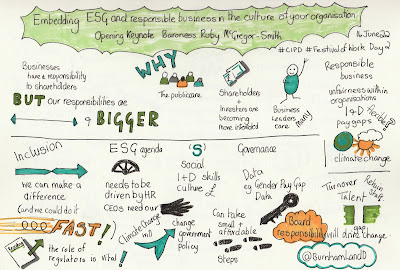 Embedding ESG and responsible business in the culture of your organisation
Opening Keynote Baroness Ruby McGregor-Smith
16 June 22
#CIPD #Festival of Work Day 2
Businesses
have a responsibility
to shareholders
BUT our responsibilities are
BIGGER
WHY
The public care
Shareholders
+
Investors are
becoming
more interested
Business
Leaders
care
Many
Responsible
business
unfairness within
organisations
I+D
Flexibility
pay gaps
climate change
Inclusion
we can make a
difference
(and we could do it)
FAST!
the role of
regulators is vital!
ESG agenda
needs to be
driven by HR
CEOs need our
Climate Change
'S'
Social
I+D skills
culture £
change
government
policy
Governance
Data
eg Gender Pay Gap
Data
Can take
small +
affordable
Steps
KEY
Turnover
Retain
Staff
Talent
gap
Board
responsibility
will drive change
@BurnhamLandD